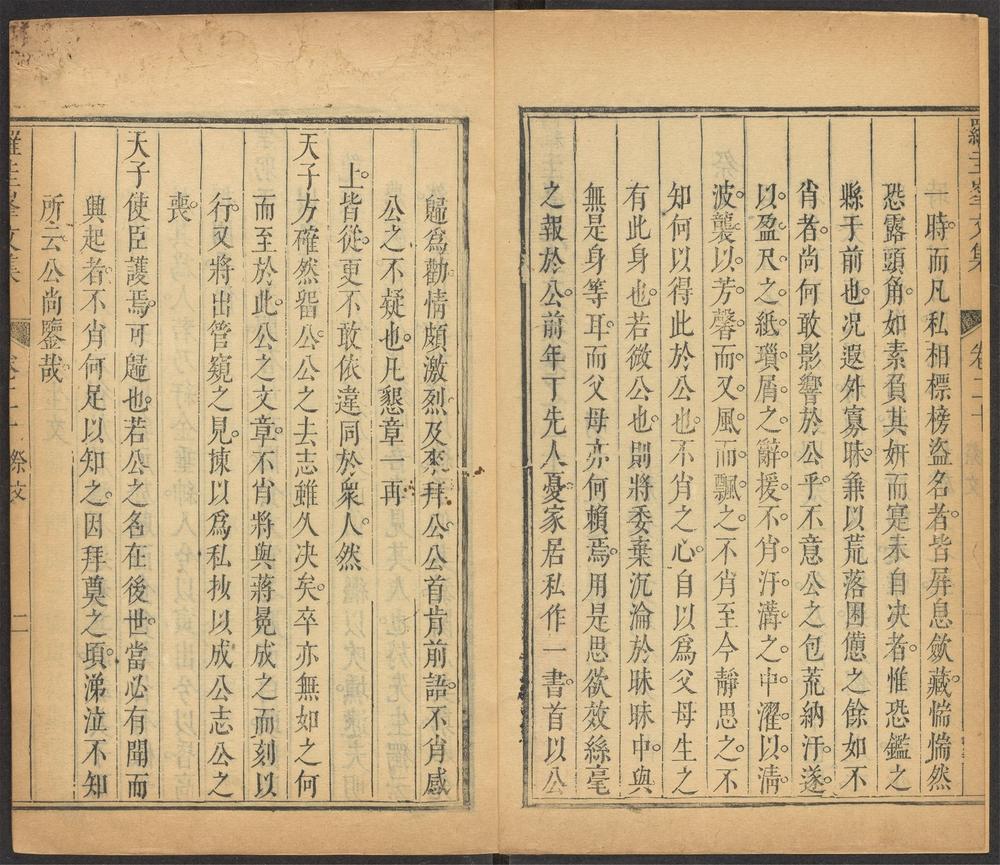 羅圭峯文集
卷二十
時而凡私相標榜盜名者皆屏息歛藏惴惴然
恐露頭角如素負其妍而寔未自决者惟恐鑑之
縣于前也况遐外寡昧兼以荒落困憊之餘如不
肖者尚何敢影響於公乎不意公之包荒納汙遂
以盈尺之紙瑣屑之辭援不肖汙溝之中濯以清
波襲以芳馨而又風而飄之不肖至今靜思之不
知何以得此於公也不肖之心自以爲父母生之
有此身也若微公也則將委棄沉淪於昧昧中與
無是身等耳而父母亦何賴焉用是思欲效絲毫
之報於公前年丁先人憂家居私作一書首以公
歸爲勸情頗激烈及來拜公公首肯前語不肖感
公之不疑也凡懇章一再
上皆從更不敢依違同於衆人然
天子方確然畱公公之去志雖久决矣卒亦無如之何
而至於此公之文章不肖將與蔣冕成之而刻以
行又將出管窺之見揀以爲私抄以成公志公之
喪
天子使臣護焉可歸也若公之名在後世當必有聞而
興起者不肖何足以知之因拜奠之頃涕泣不知
所云公尚鑒哉
羅圭峯文集
卷二十 祭文
二